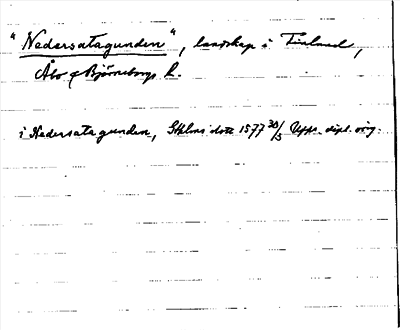 "Nedersatagunden", landskap i Finland,
Åbo o. Björneborgs l.
i Nedersatagunden, Sthlms slott 1577 30/5 Upps. dipl. orig.